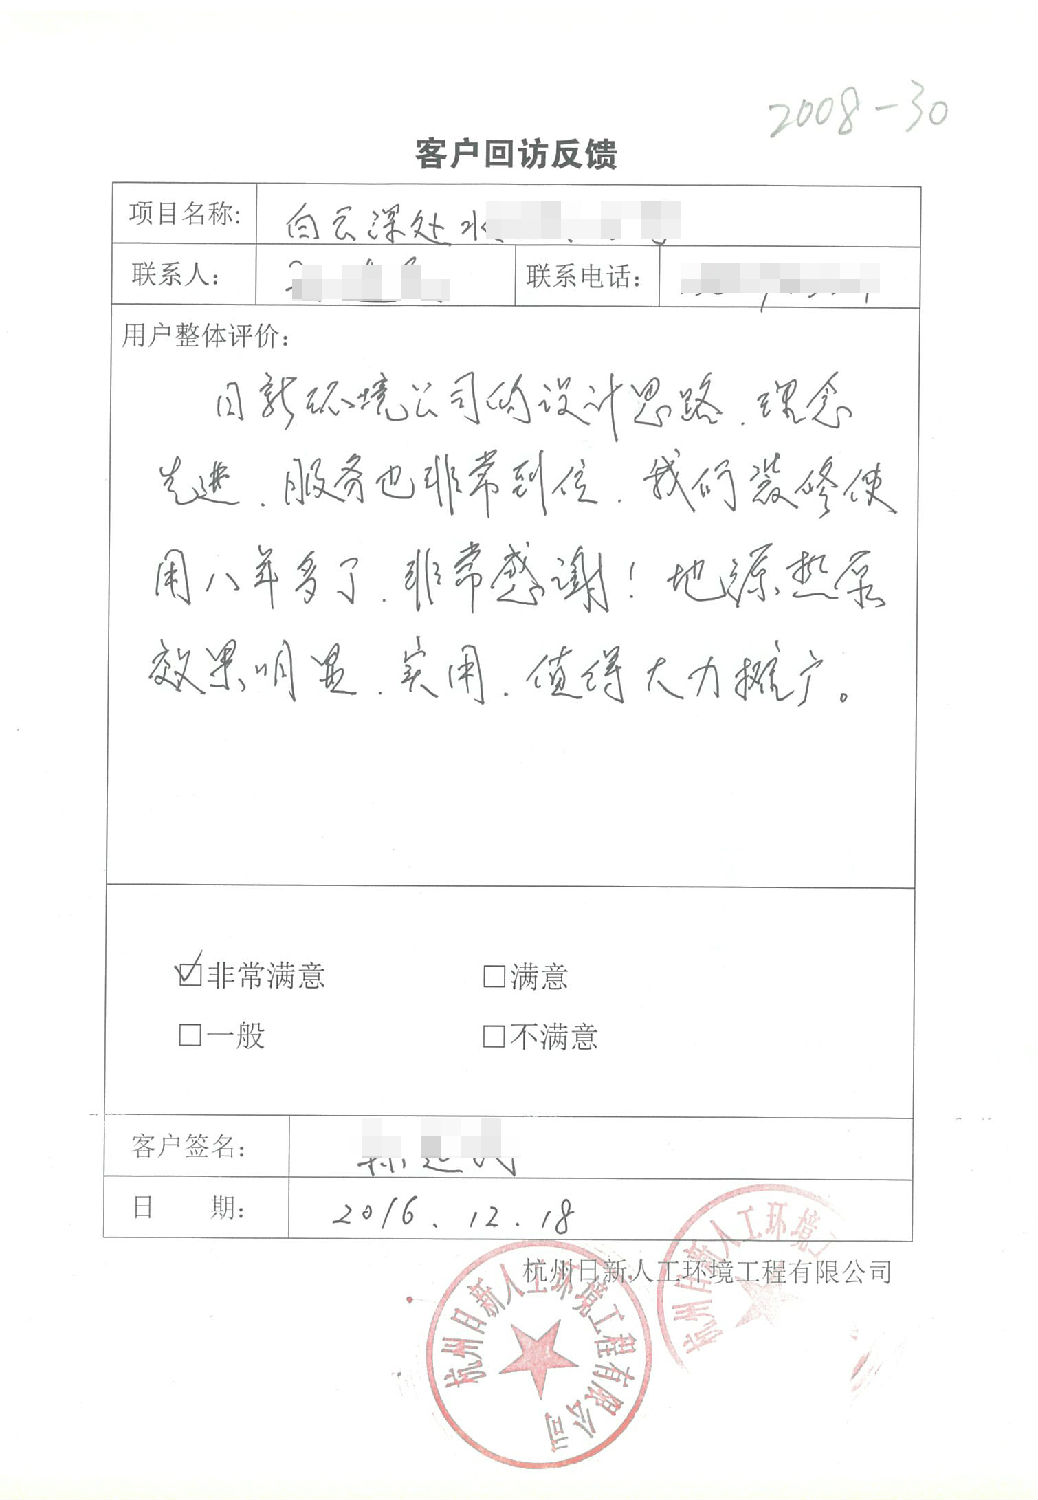 2008-30
客户回访反馈
项目名称: 白云深处水
联系人: 联系电话:
用户整体评价:
日新环境公司的设计思路、理念
先进、服务也非常到位、我们装修使
用八年多了、非常感谢！地源热泵
效果明显、实用、值得大力推广。
☑非常满意 □满意
□一般 □不满意
客户签名:
日 期: 2016.12.18
杭州日新人工环境工程有限公司
杭州日新人工环境工程有限公司
杭州日新人工环境